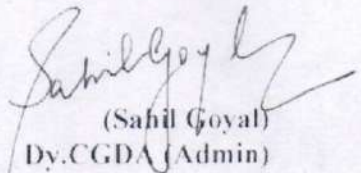 Sahil Goyal
(Sahil Goyal)
Dy.CGDA (Admin)